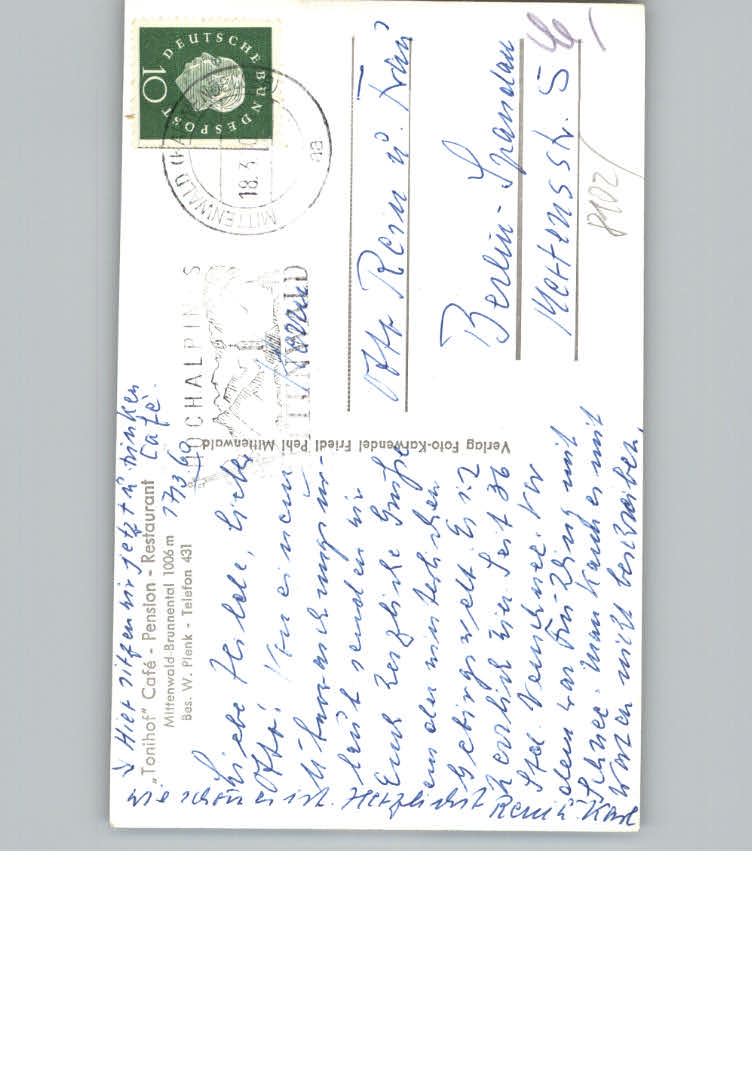 ↓ Hier sitzen wir jetzt u. trinken
Café.
„Tonihof" Café - Pension - Restaurant
Mittenwald-Brunnental 1006 m
Bes. W. Plenk - Telefon 431
17.3.60
Liebe Heilde, lieber
Otto! Von einem
leub senden wir
Euch herzliche Grüße
aus der winterlichen
Gebirgswelt. Es ist
herrlich hier. Seit 36
Std. Neuschnee. Vor
dem war Frühling mit
Schnee. Man kann es mit
Worten nicht beschreiben,
wie schön es ist. Herzlichst Reni u. Karl
Verlag Foto-Karwendel Friedl Pehl Mittenwald
DEUTSCHE BUNDESPOST
10
MITTENWALD
18.3
aa
HOCHALPINES
MITTENWALD
Otto Rein u. Frau
Berlin-Spandau
Mertensstr. 5